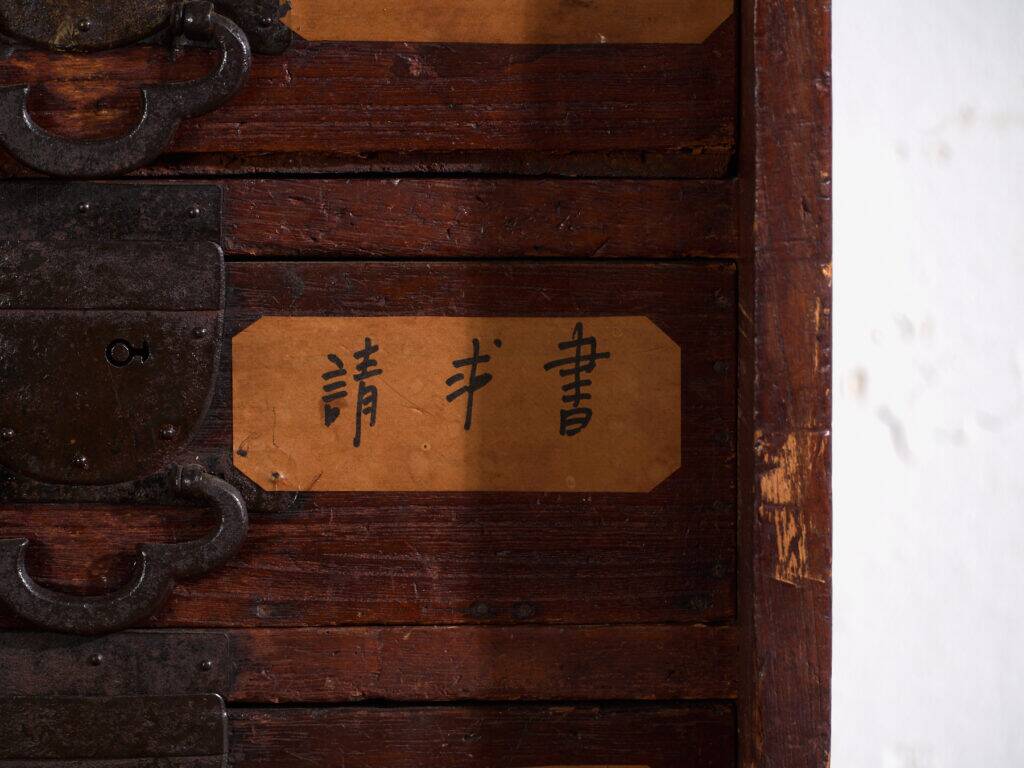 請求書